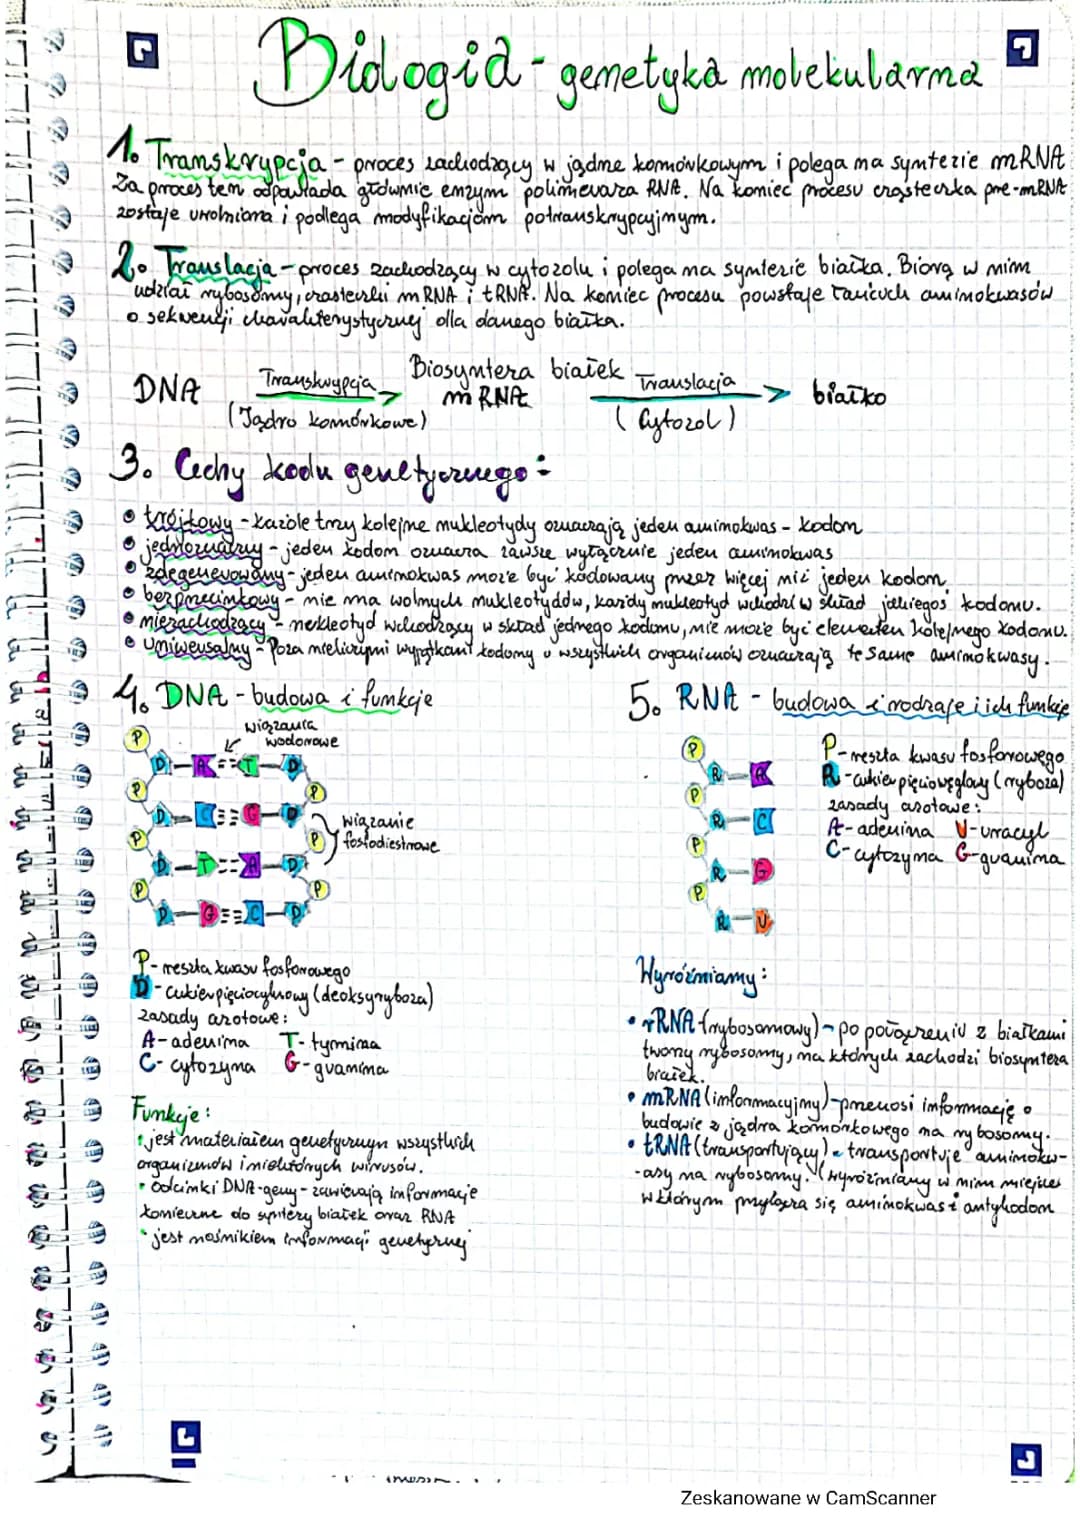 Biologia - genetyka molekularna
1. Transkrypcja - proces zachodzący w jądrze komórkowym i polega na syntezie mRNA
Za proces ten odpowiada głównie enzym polimeraza RNA. Na koniec procesu cząsteczka pre-mRNA
zostaje uwolniona i podlega modyfikacjom potranskrypcyjnym.
2. Translacja - proces zachodzący w cytozolu i polega na syntezie białka. Biorą w nim
udział rybosomy, cząsteczki mRNA i tRNA. Na koniec procesu powstaje łańcuch aminokwasów
o sekwencji charakterystycznej dla danego białka.
Biosynteza białek
DNA Transkrypcja mRNA Translacja białko
(Jądro komórkowe) (Cytozol)
3. Cechy kodu genetycznego:
• trójkowy - każde trzy kolejne nukleotydy oznaczają jeden aminokwas - kodon
• jednoznaczny - jeden kodon oznacza zawsze wyłącznie jeden aminokwas
• zdegenerowany - jeden aminokwas może być kodowany przez więcej niż jeden kodon
• bezprzecinkowy - nie ma wolnych nukleotydów, każdy nukleotyd wchodzi w skład jakiegoś kodonu.
• niezachodzący - nukleotyd wchodzący w skład jednego kodonu, nie może być elementem kolejnego kodonu.
• uniwersalny - Poza nielicznymi wyjątkami kodony u wszystkich organizmów oznaczają te same aminokwasy.
4. DNA - budowa i funkcje
wiązania
wodorowe
P
D A T D
P P
D C G D
wiązanie
fosfodiestrowe
P P
D T A D
P P
D G C D
P - reszta kwasu fosforowego
D - cukier pięciowęglowy (deoksyryboza)
zasady azotowe:
A - adenina T - tymina
C - cytozyna G - guanina
Funkcje:
• jest materiałem genetycznym wszystkich
organizmów i niektórych wirusów.
• Odcinki DNA - geny - zawierają informacje
konieczne do syntezy białek oraz RNA
• jest nośnikiem informacji genetycznej
5. RNA - budowa i rodzaje i ich funkcje
P
R A
P
R C
P
R G
P
R U
P - reszta kwasu fosforowego
R - cukier pięciowęglowy (ryboza)
zasady azotowe:
A - adenina U - uracyl
C - cytozyna G - guanina
Wyróżniamy:
• rRNA (rybosomowy) - po połączeniu z białkami
tworzy rybosomy, na których zachodzi biosynteza
białek.
• mRNA (informacyjny) - przenosi informację o
budowie z jądra komórkowego na rybosomy.
• tRNA (transportujący) - transportuje aminokw-
-asy na rybosomy. (wyróżniamy w nim miejsce
w którym przyłącza się aminokwas i antykodon
Zeskanowane w CamScanner